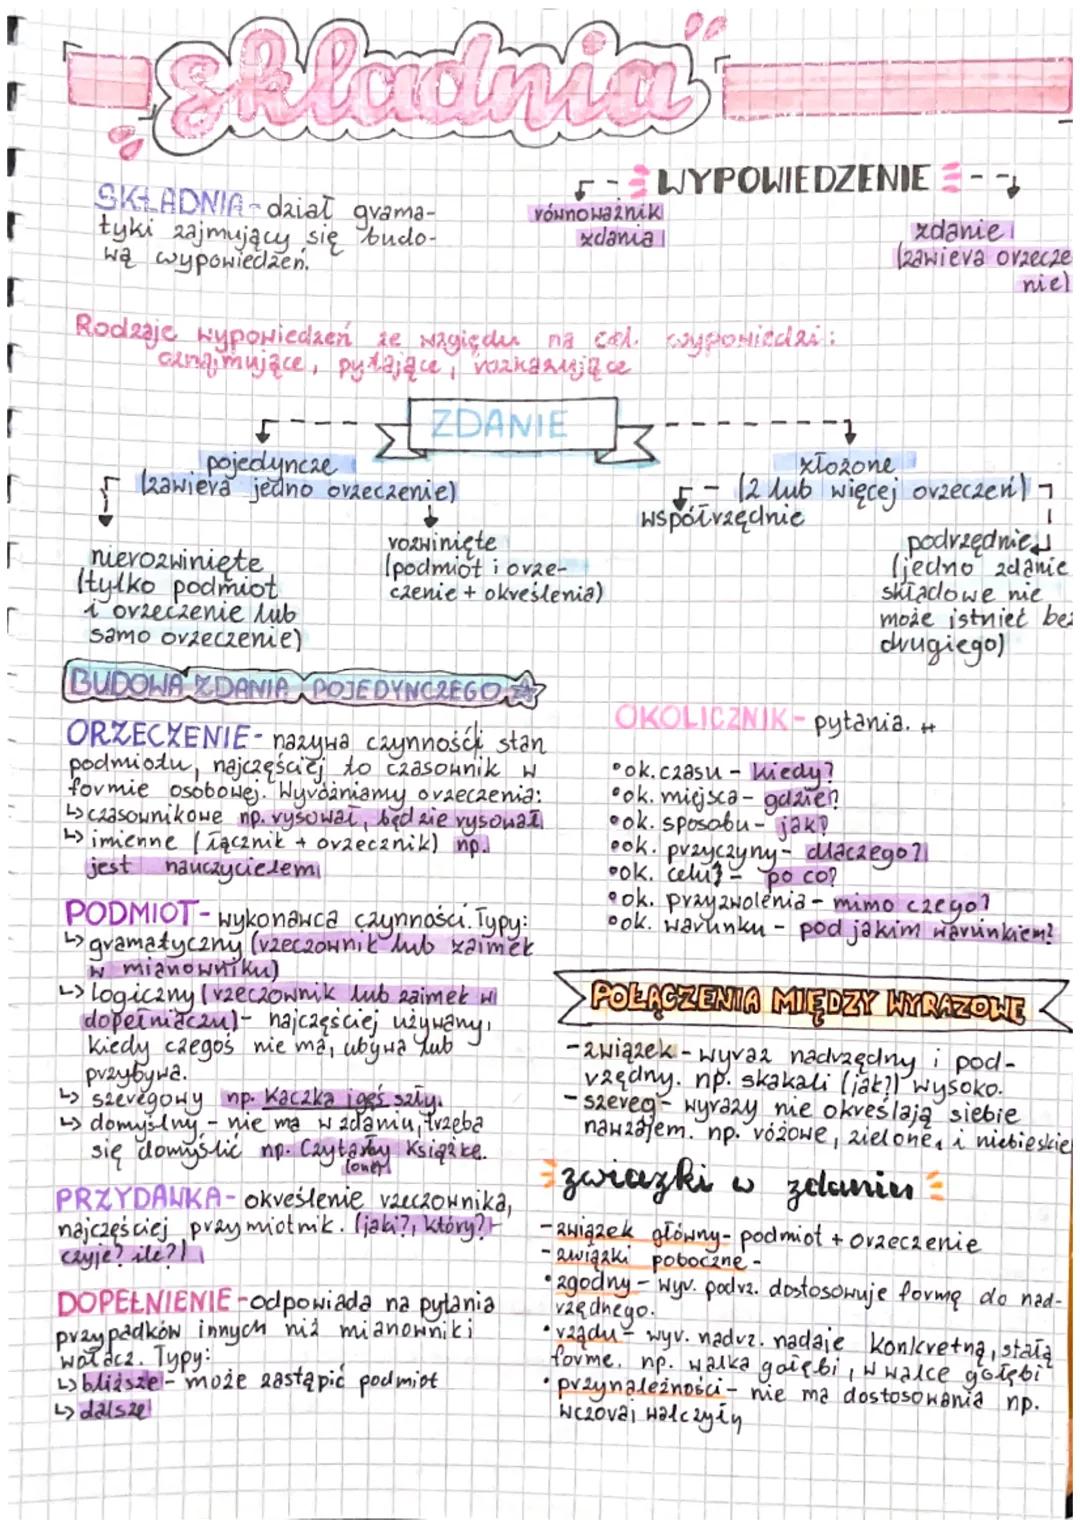 składnia
SKŁADNIA - dział grama-
tyki zajmujący się budo-
wą wypowiedzeń.
WYPOWIEDZENIE
równoważnik
zdania
zdanie
(zawiera orzecze
nie)
Rodzaje wypowiedzeń ze względu na cel wypowiedzi:
oznajmujące, pytające, rozkazujące
ZDANIE
pojedyncze
(zawiera jedno orzeczenie)
nierozwinięte
(tylko podmiot
i orzeczenie lub
samo orzeczenie)
rozwinięte
(podmiot i orze-
czenie + określenia)
złożone
(2 lub więcej orzeczeń)
współrzędnie
podrzędnie
(jedno zdanie
składowe nie
może istnieć bez
drugiego)
BUDOWA ZDANIA POJEDYNCZEGO
ORZECZENIE - nazywa czynności stan
podmiotu, najczęściej to czasownik w
formie osobowej. Wyróżniamy orzeczenia:
↳ czasownikowe np. rysował, będzie rysował
↳ imienne (łącznik + orzecznik) np.
jest nauczycielem
PODMIOT - wykonawca czynności. Typy:
↳ gramatyczny (rzeczownik lub zaimek
w mianowniku)
↳ logiczny (rzeczownik lub zaimek w
dopełniaczu) - najczęściej używany,
kiedy czegoś nie ma, ubywa lub
przybywa.
↳ szeregowy np. Kaczka i gęś szły.
↳ domyślny - nie ma w zdaniu, trzeba
się domyślić np. Czytałby Książkę.
(one)
PRZYDAWKA - określenie rzeczownika,
najczęściej przymiotnik. (jaki?, który?
czyje? ile?)
DOPEŁNIENIE - odpowiada na pytania
przypadków innych niż mianownik i
wołacz. Typy:
↳ bliższe - może zastąpić podmiot
↳ dalsze
OKOLICZNIK - pytania.
• ok. czasu - kiedy?
• ok. miejsca - gdzie?
• ok. sposobu - jak?
• ok. przyczyny - dlaczego?
• ok. celu - po co?
• ok. przyzwolenia - mimo czego?
• ok. warunku - pod jakim warunkiem?
POŁĄCZENIA MIĘDZY WYRAZOWE
- związek - wyraz nadrzędny i pod-
rzędny. np. skakali (jak?) wysoko.
- szereg - wyrazy nie określają siebie
nawzajem. np. różowe, zielone, i niebieskie
związki w zdaniu
- związek główny - podmiot + orzeczenie
- związki poboczne -
• zgodny - wyr. podrz. dostosowuje formę do nad-
rzędnego.
• rządu - wyr. nadrz. nadaje konkretną, stałą
forme. np. walka gołębi, w walce gołębi
• przynależności - nie ma dostosowania np.
wczoraj walczyły